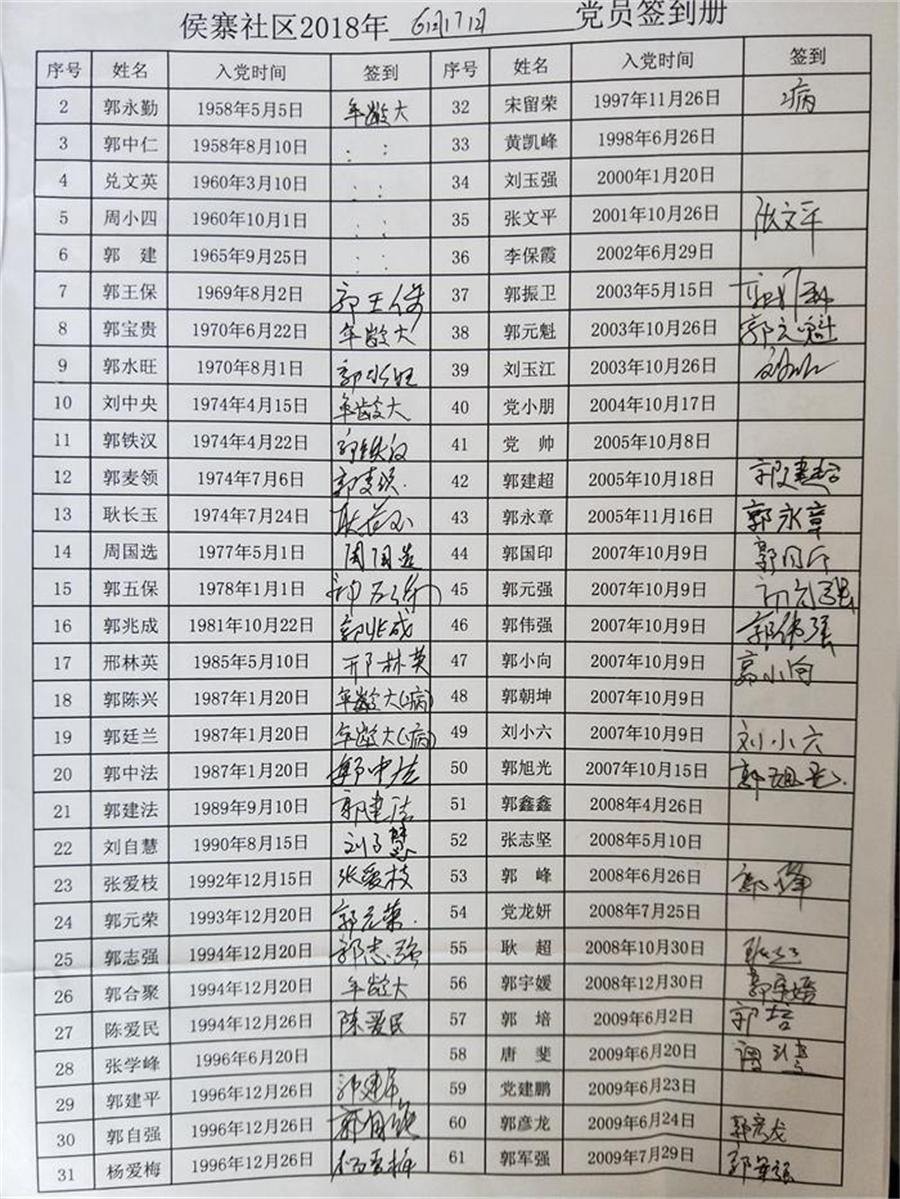 侯寨社区2018年 6月17日 党员签到册
序号 姓名 入党时间 签到 序号 姓名 入党时间 签到
2 郭永勤 1958年5月5日 年龄大 32 宋留荣 1997年11月26日 病
3 郭中仁 1958年8月10日 : : 33 黄凯峰 1998年6月26日
4 兑文英 1960年3月10日 : : 34 刘玉强 2000年1月20日
5 周小四 1960年10月1日 : : 35 张文平 2001年10月26日 张文平
6 郭 建 1965年9月25日 : : 36 李保霞 2002年6月29日
7 郭王保 1969年8月2日 郭王保 37 郭振卫 2003年5月15日
8 郭宝贵 1970年6月22日 年龄大 38 郭元魁 2003年10月26日 郭元魁
9 郭水旺 1970年8月1日 郭水旺 39 刘玉江 2003年10月26日
10 刘中央 1974年4月15日 年龄大 40 党小朋 2004年10月17日
11 郭铁汉 1974年4月22日 郭铁汉 41 党 帅 2005年10月8日
12 郭麦领 1974年7月6日 郭麦领 42 郭建超 2005年10月18日 郭建超
13 耿长玉 1974年7月24日 43 郭永章 2005年11月16日 郭永章
14 周国选 1977年5月1日 周国选 44 郭国印 2007年10月9日 郭国印
15 郭五保 1978年1月1日 郭五保 45 郭元强 2007年10月9日 郭元强
16 郭兆成 1981年10月22日 郭兆成 46 郭伟强 2007年10月9日 郭伟强
17 邢林英 1985年5月10日 邢林英 47 郭小向 2007年10月9日 郭小向
18 郭陈兴 1987年1月20日 年龄大(病) 48 郭朝坤 2007年10月9日
19 郭廷兰 1987年1月20日 年龄大(病) 49 刘小六 2007年10月9日 刘小六
20 郭中法 1987年1月20日 郭中法 50 郭旭光 2007年10月15日 郭旭光
21 郭建法 1989年9月10日 郭建法 51 郭鑫鑫 2008年4月26日
22 刘自慧 1990年8月15日 刘自慧 52 张志坚 2008年5月10日
23 张爱枝 1992年12月15日 张爱枝 53 郭 峰 2008年6月26日 郭峰
24 郭元荣 1993年12月20日 郭元荣 54 党龙妍 2008年7月25日
25 郭志强 1994年12月20日 郭志强 55 耿 超 2008年10月30日
26 郭合聚 1994年12月20日 年龄大 56 郭宇媛 2008年12月30日 郭宇媛
27 陈爱民 1994年12月26日 陈爱民 57 郭 培 2009年6月2日 郭培
28 张学峰 1996年6月20日 58 唐 斐 2009年6月20日
29 郭建平 1996年12月26日 郭建平 59 党建鹏 2009年6月23日
30 郭自强 1996年12月26日 郭自强 60 郭彦龙 2009年6月24日 郭彦龙
31 杨爱梅 1996年12月26日 杨爱梅 61 郭军强 2009年7月29日 郭军强